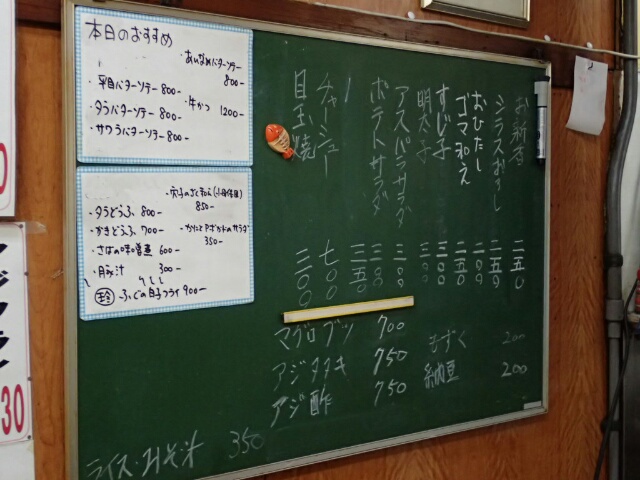 本日のおすすめ
・あいなめバターソテー
800ー
・平目バターソテー 800ー
・牛かつ 1200ー
・タラバターソテー 800ー
・サワラバターソテー 800ー
850ー
・タラどうふ 800ー
・かきどうふ 700ー
350ー
・さばの味噌煮 600ー
・豚汁 300ー
ふぐの白子フライ 900ー
お新香 二五〇
シラスおろし 二五〇
おひたし 二〇〇
ゴマ和え 二五〇
すじ子 三〇〇
明太子 三〇〇
アスパラサラダ 三〇〇
ポテトサラダ 三〇〇
三五〇
チャーシュー 七〇〇
目玉焼 三〇〇
マグロブツ 700
アジタタキ 750
アジ酢 750
もずく 200
納豆 200
ライス・みそ汁 350
30